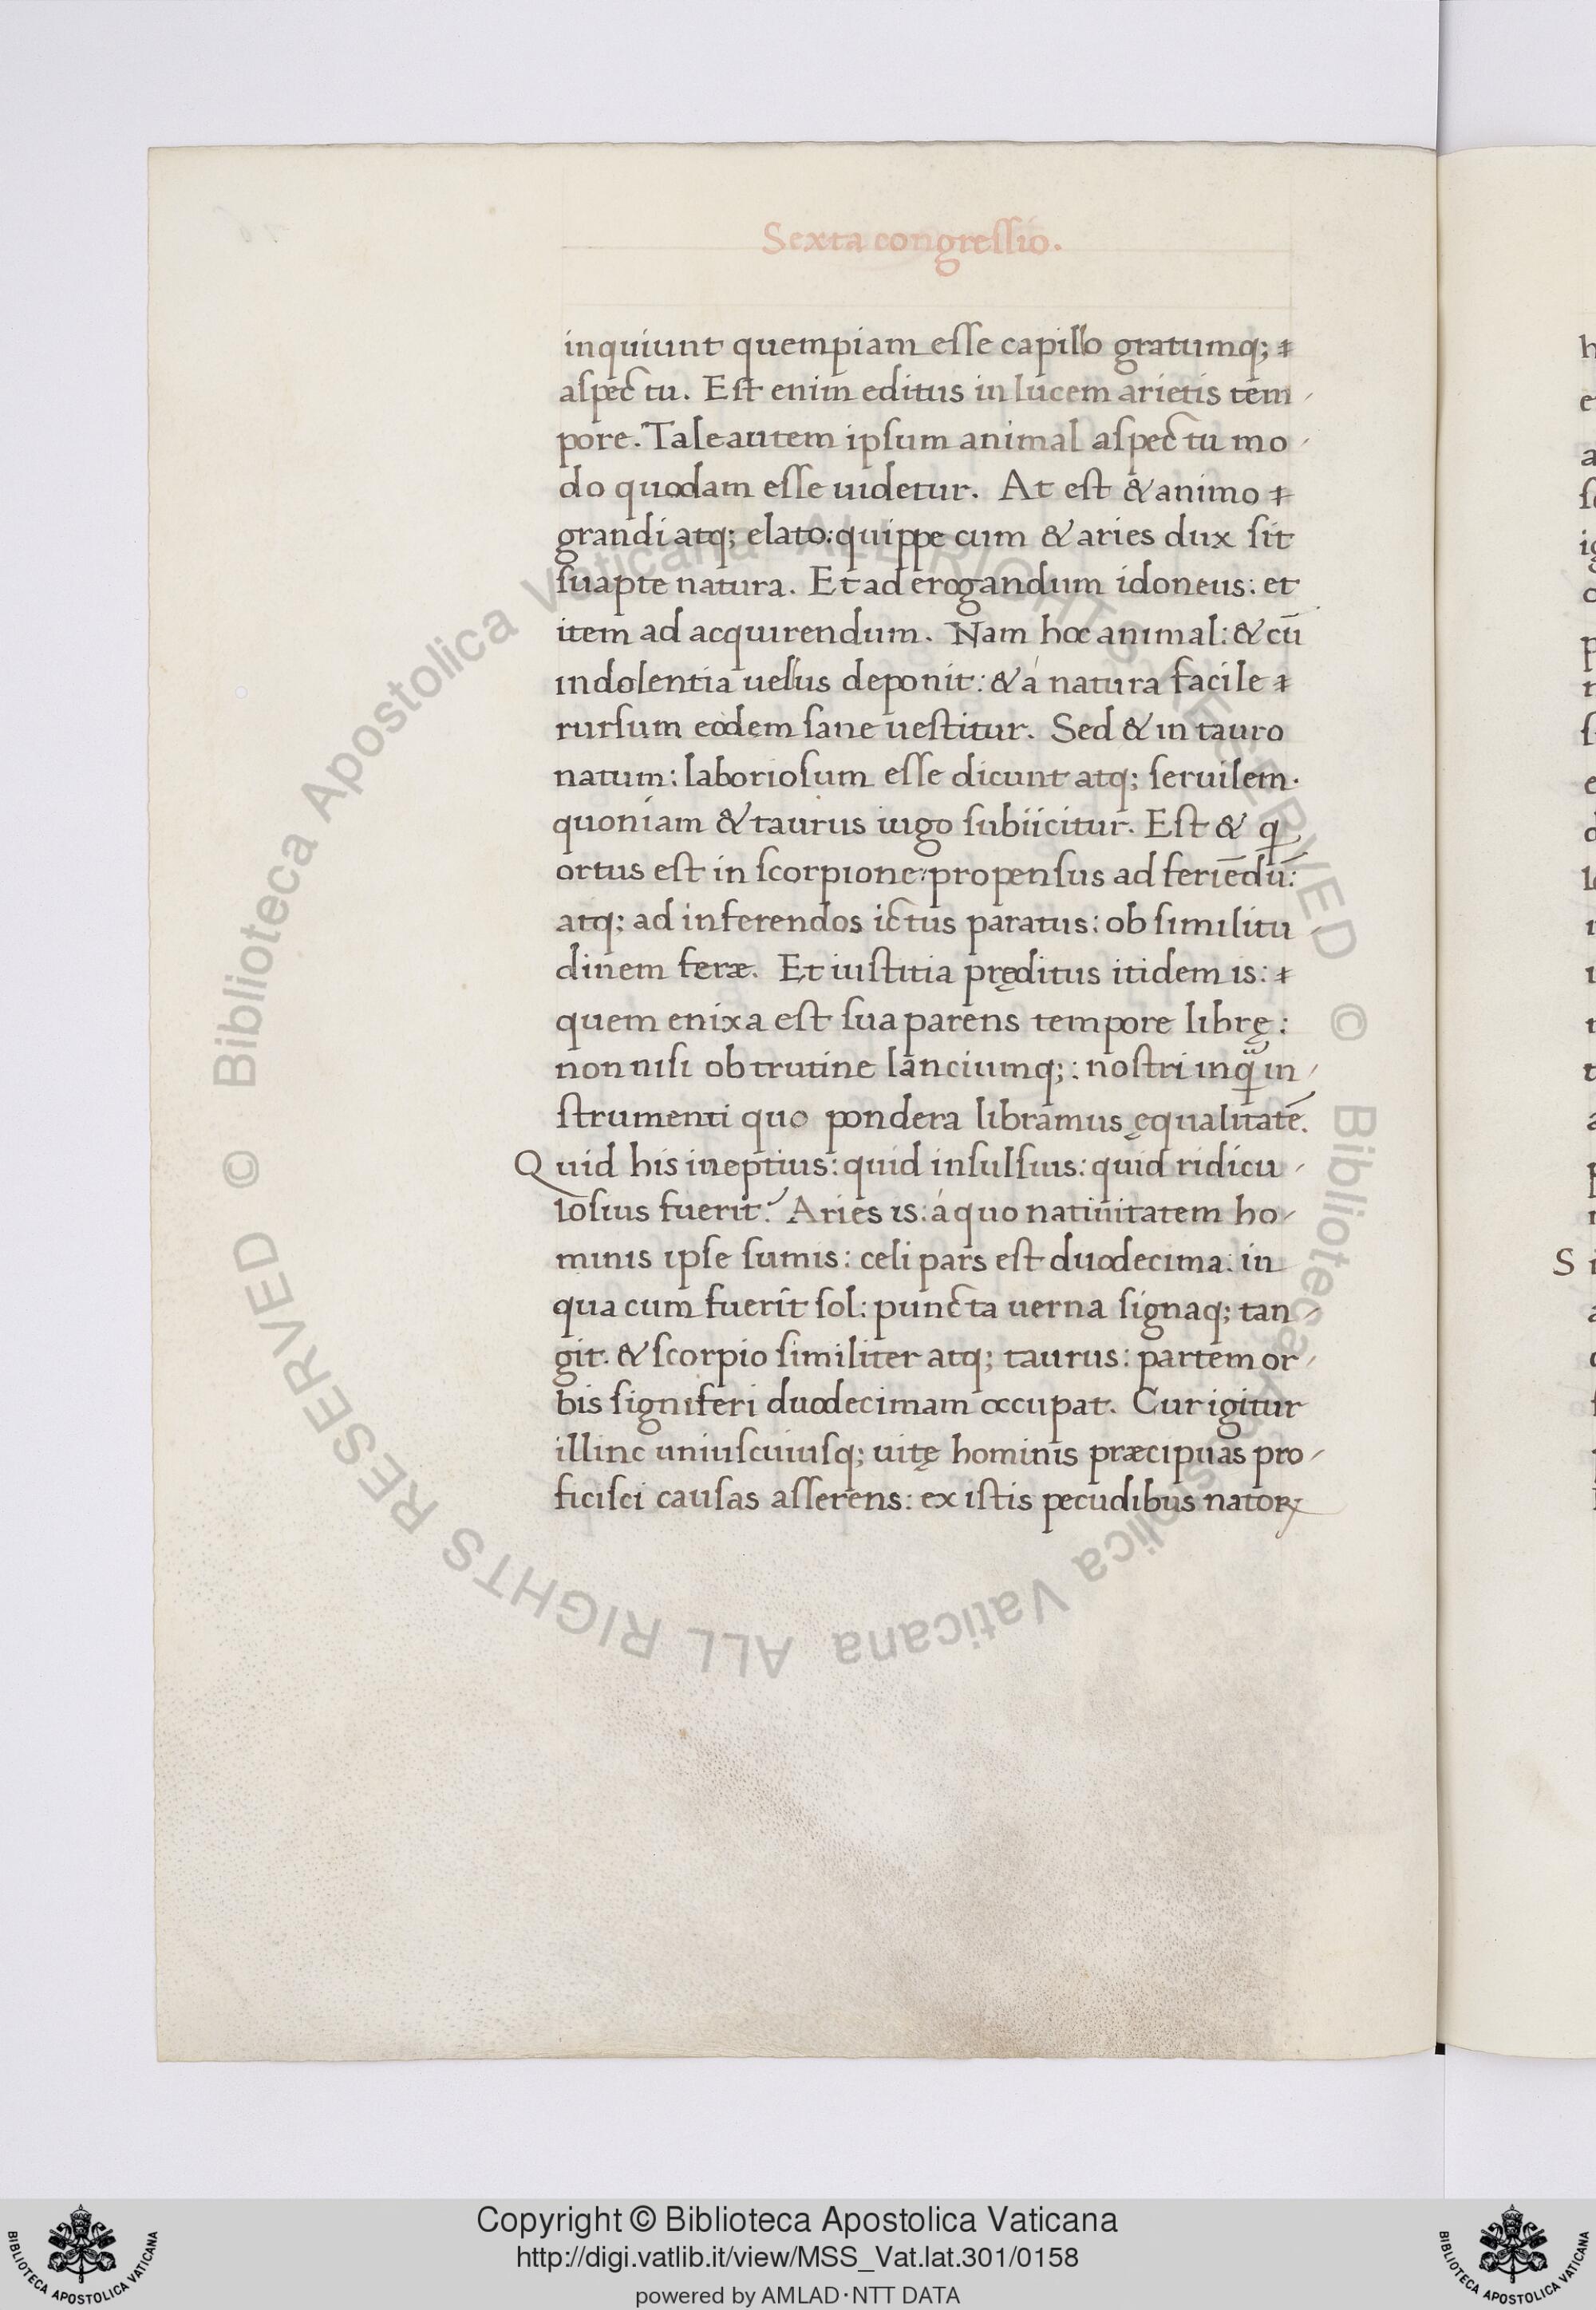 Sexta congressio.
inquiunt quempiam esse capillo gratumq;
aspectu. Est enim editus in lucem arietis tem
pore. Tale autem ipsum animal aspectu mo
do quodam esse uidetur. At est & animo
grandi atq; elato: quippe cum & aries dux sit
suapte natura. Et ad erogandum idoneus: et
item ad acquirendum. Nam hoc animal: & cū
indolentia uellus deponit: & á natura facile
rursum eodem sane uestitur. Sed & in tauro
natum: laboriosum esse dicunt atq; seruilem.
quoniam & taurus iugo subiicitur. Est & q
ortus est in scorpione: propensus ad feriēdū:
atq; ad inferendos ictus paratus: ob similitu
dinem feræ. Et iustitia pręditus itidem is:
quem enixa est sua parens tempore librę:
non nisi ob trutine lanciumq;: nostri inq̃ in
strumenti quo pondera libramus ęqualitatē.
Quid his ineptius: quid insulsius: quid ridicu
losius fuerit? Aries is: á quo natiuitatem ho
minis ipse sumis: celi pars est duodecima: in
qua cum fuerit sol: puncta uerna signaq; tan
git. & scorpio similiter atq; taurus: partem or
bis signiferi duodecimam occupat. Cur igitur
illinc uniuscuiusq; uitę hominis præcipuas pro
ficisci causas asserens: ex istis pecudibus natoꝝ
© Biblioteca Apostolica Vaticana ALL RIGHTS RESERVED © Biblioteca Apostolica Vaticana ALL RIGHTS RESERVED
Copyright © Biblioteca Apostolica Vaticana
http://digi.vatlib.it/view/MSS_Vat.lat.301/0158
powered by AMLAD·NTT DATA
BIBLIOTECA APOSTOLICA VATICANA
BIBLIOTECA APOSTOLICA VATICANA